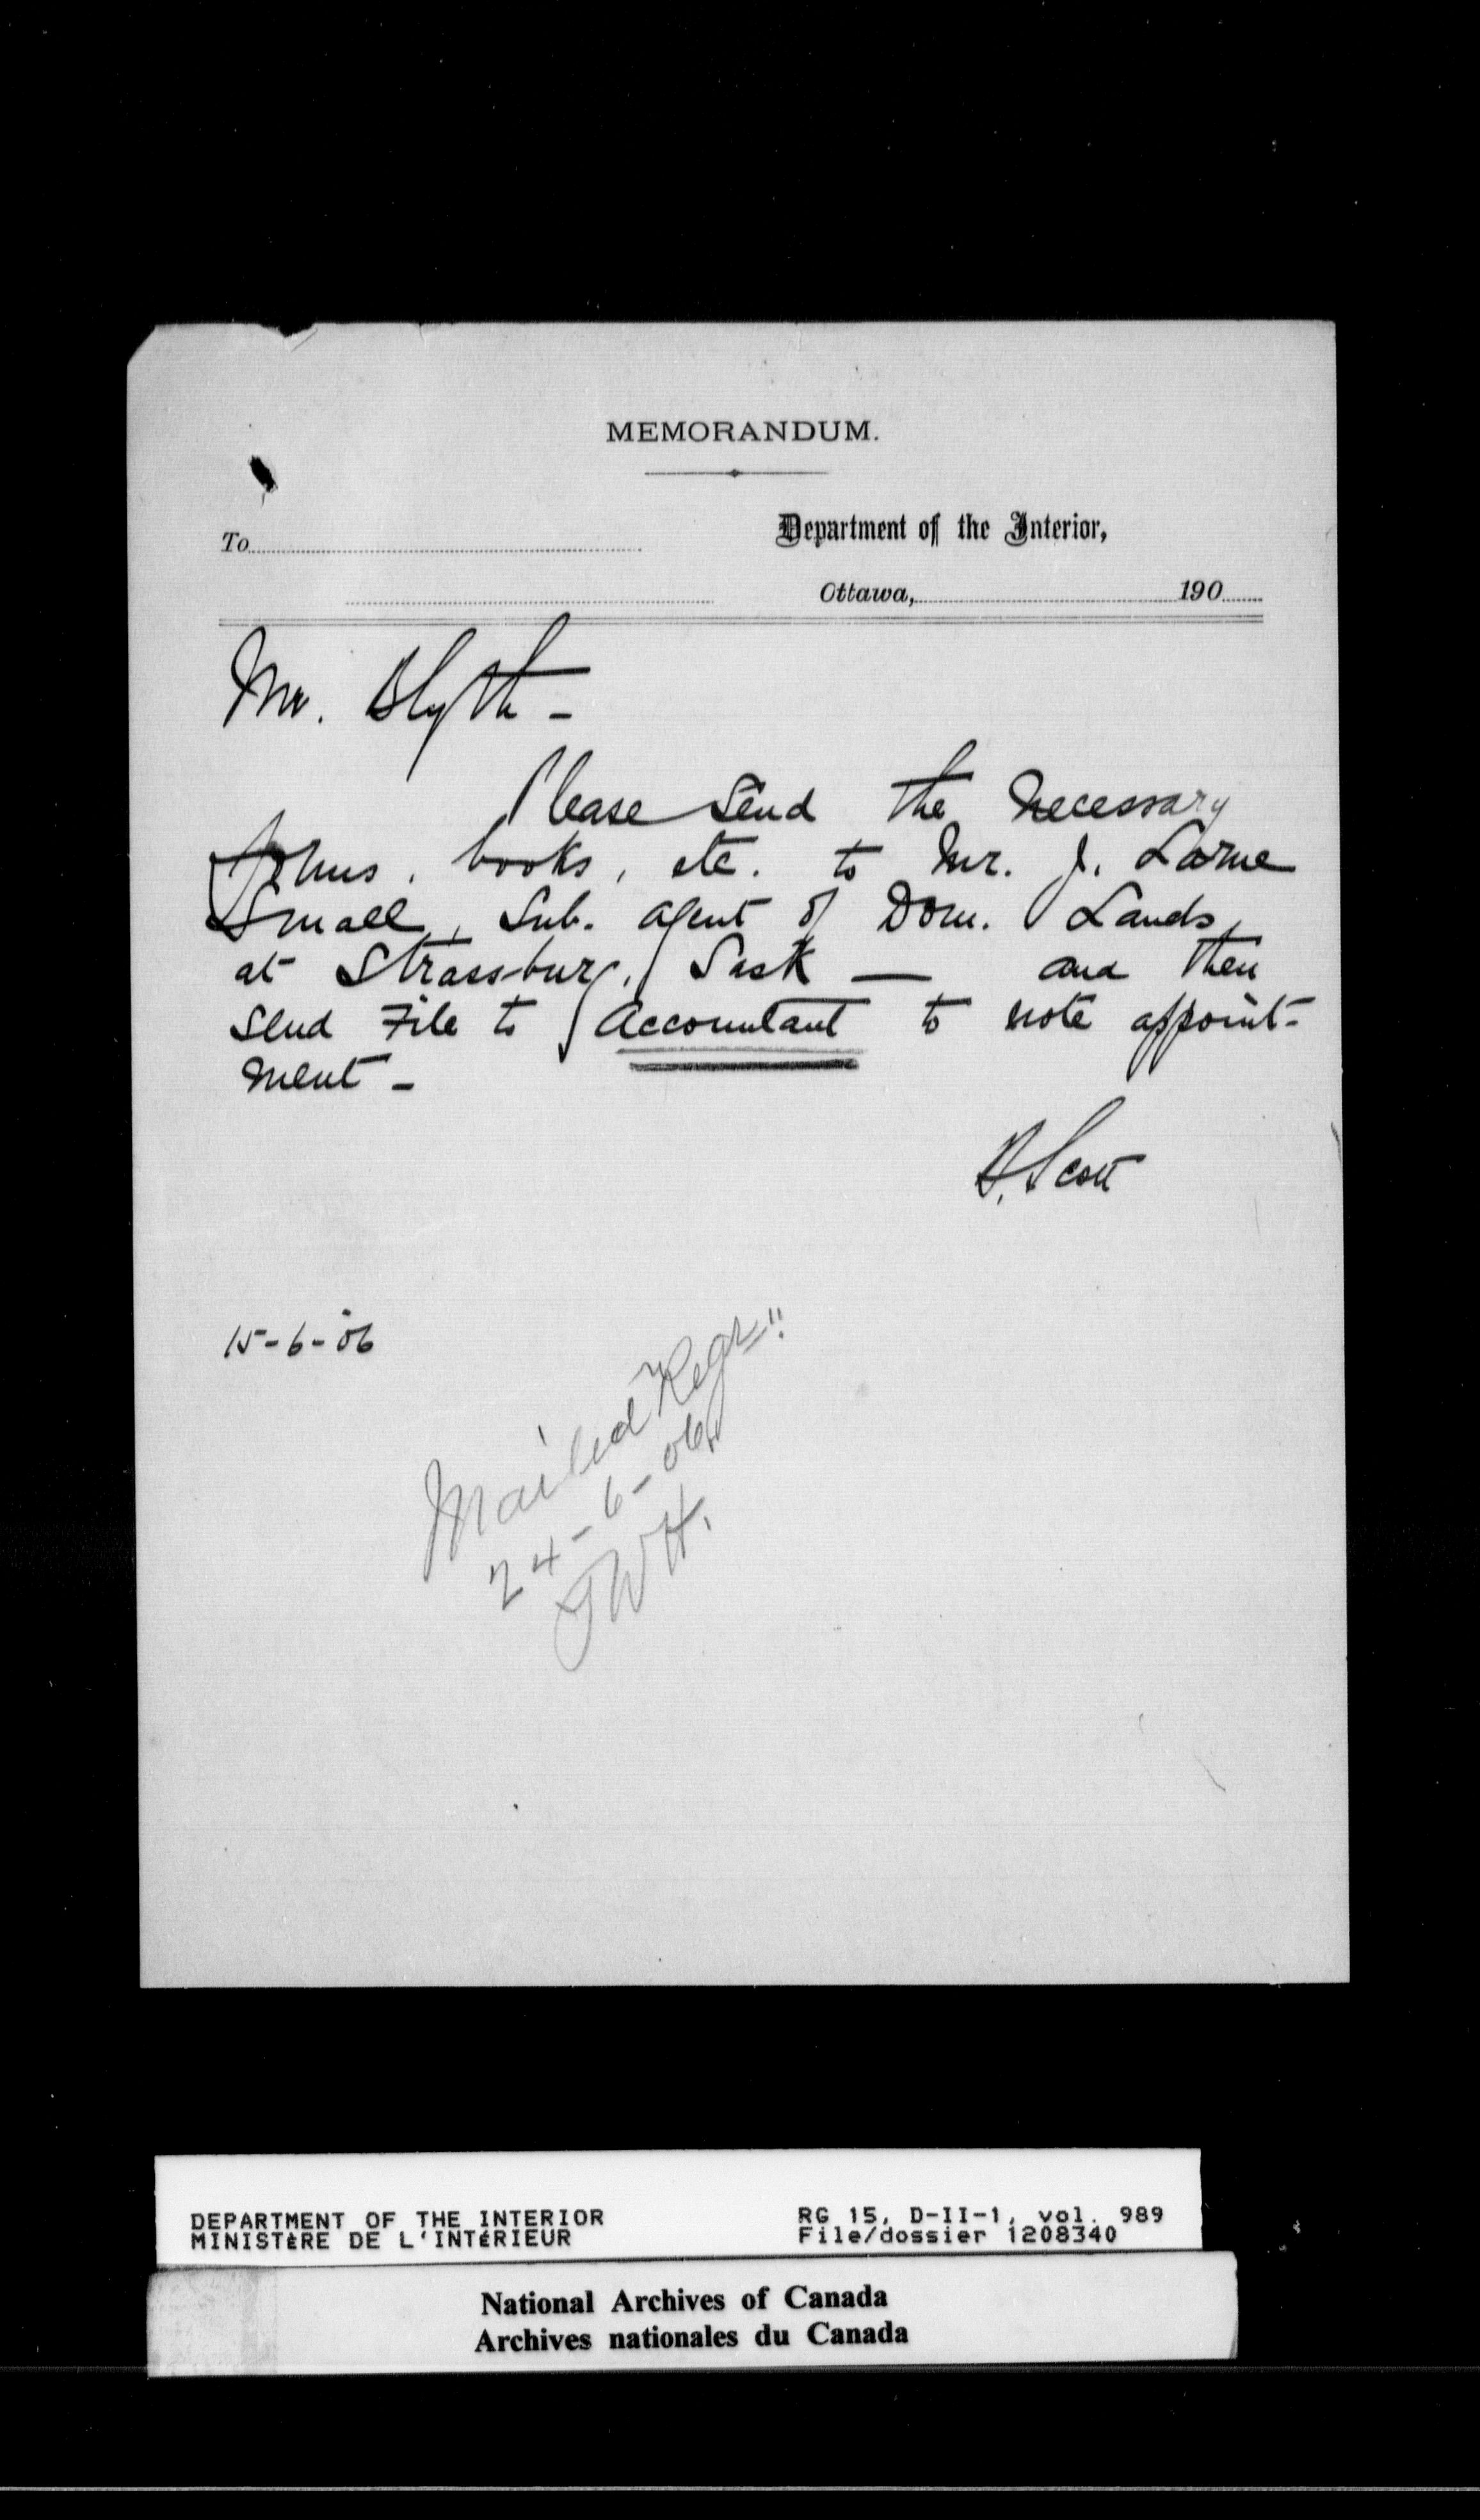 MEMORANDUM.
To
Department of the Interior,
Ottawa, 190
Mr. Blyth -
Please send the necessary
forms, books, etc. to Mr. J. Lorne
Small, Sub. Agent of Dom. Lands,
at Strassburg, Sask — and then
send File to Accountant to note appoint-
ment -
Scott
15-6-06
Mailed "Regr".
24-6-06
JWH.
DEPARTMENT OF THE INTERIOR
MINISTèRE DE L'INTéRIEUR
RG 15, D-II-1, vol. 989
File/dossier 1208340
National Archives of Canada
Archives nationales du Canada